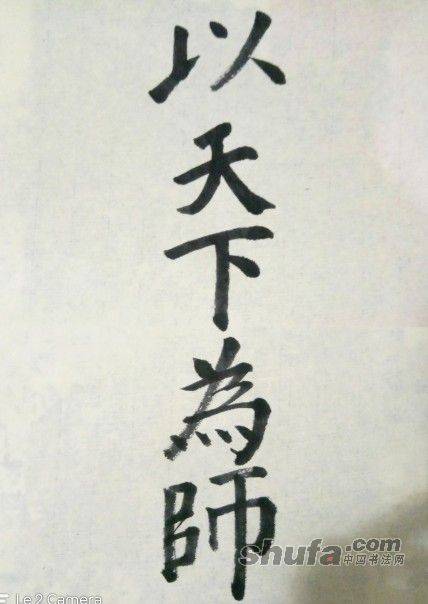 以天下為師
shufa.com
中国书法网
Le 2 Camera